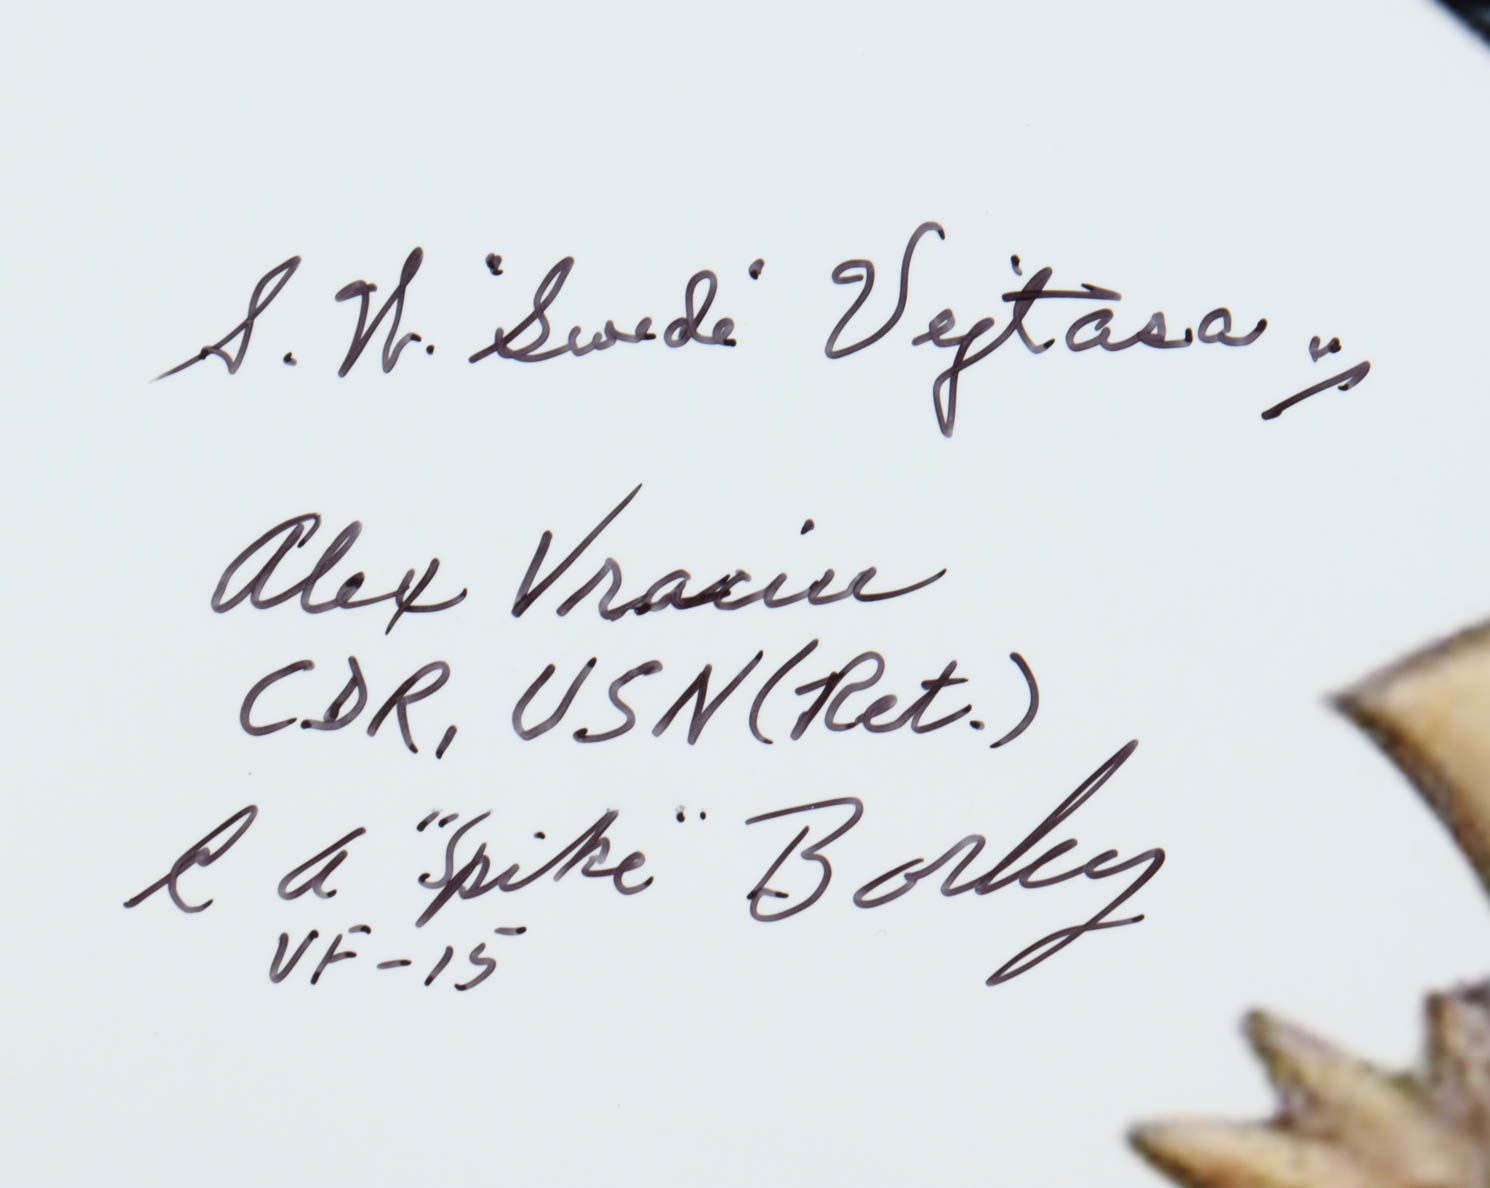 S. W. "Swede" Vejtasa
Alex Vraciu
CDR, USN (Ret.)
C A "Spike" Borley
VF-15